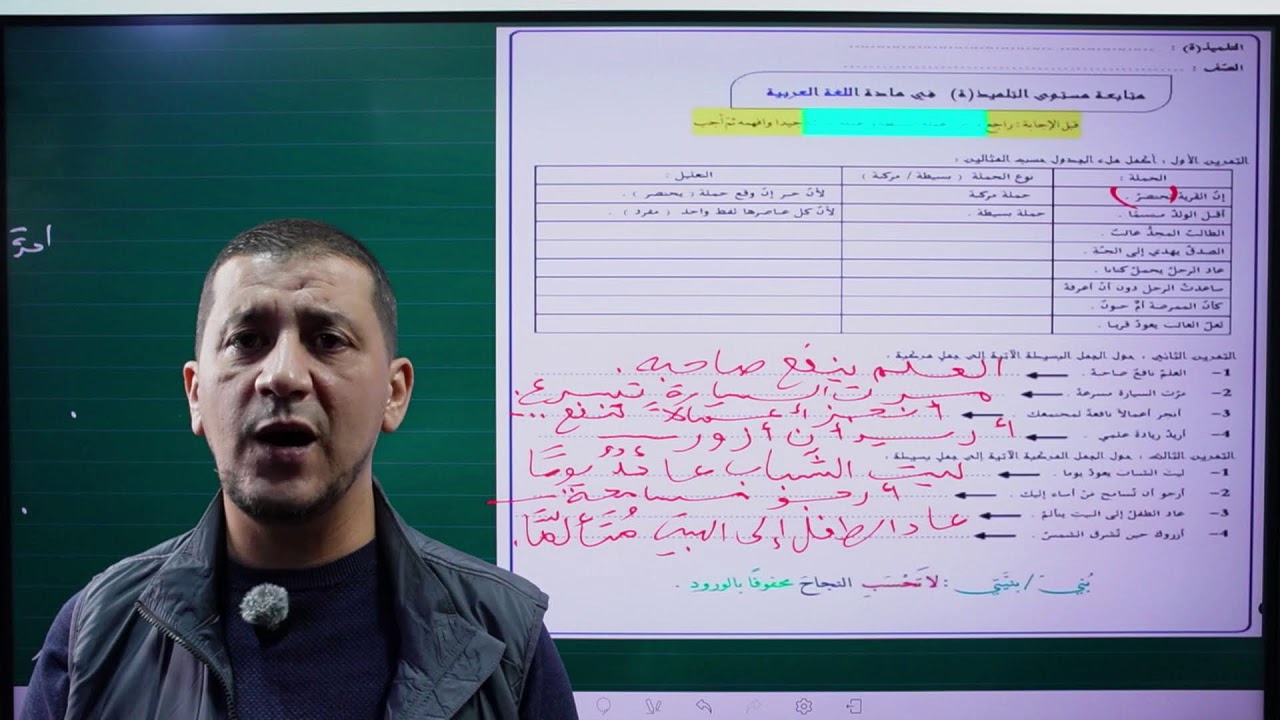 التلميذ(ة) :
الصف :
متابعة مستوى التلميذ(ة) في مادة اللغة العربية
قبل الإجابة : راجع جيدا وافهمه ثمّ أجب
التمرين الأول : أكمل ملء الجدول حسب المثالين :
الجملة : نوع الجملة ( بسيطة / مركبة ) التعليل :
إنّ القرية تحتضر . جملة مركبة لأنّ خبر إنّ وقع جملة ( يحتضر ) .
أقبل الولدُ مبتسمًا . جملة بسيطة . لأنّ كل عناصرها لفظ واحد ( مفرد ) .
الطالبُ المجدُّ غائبٌ .
الصدقُ يهدي إلى الجنّة .
عاد الرجلُ يحملُ كتابا .
ساعدتُ الرجل دون أنْ أعرفه
كأنّ الممرضة أمٌّ حنونٌ .
لعلّ الغائب يعودُ قريبا .
التمرين الثاني : حول الجمل البسيطة الآتية إلى جمل مركبة .
1- العلمُ نافعٌ صاحبه . العلم ينفع صاحبه .
2- مرّت السيارة مسرعة . مرت السيارة تسرع .
3- أنجز أعمالاً نافعةً لمجتمعك . أنجز أعمالاً تنفع ...
4- أريدُ زيارة عمتي . أريد أن أزور
التمرين الثالث : حول الجمل المركبة الآتية إلى جمل بسيطة .
1- ليت الشباب يعودُ يوما . ليت الشَّباب عائدٌ يومًا
2- أرجو أن تُسامح من أساء إليك . أرجو مسامحة
3- عاد الطفلُ إلى البيت يتألمُ . عاد الطفل إلى البيت مُتألمًا .
4- أزورك حين تُشرق الشمسُ .
بُنيّ / بنيّتي : لا تَحْسَبِ النجاحَ محفوفًا بالورودِ .